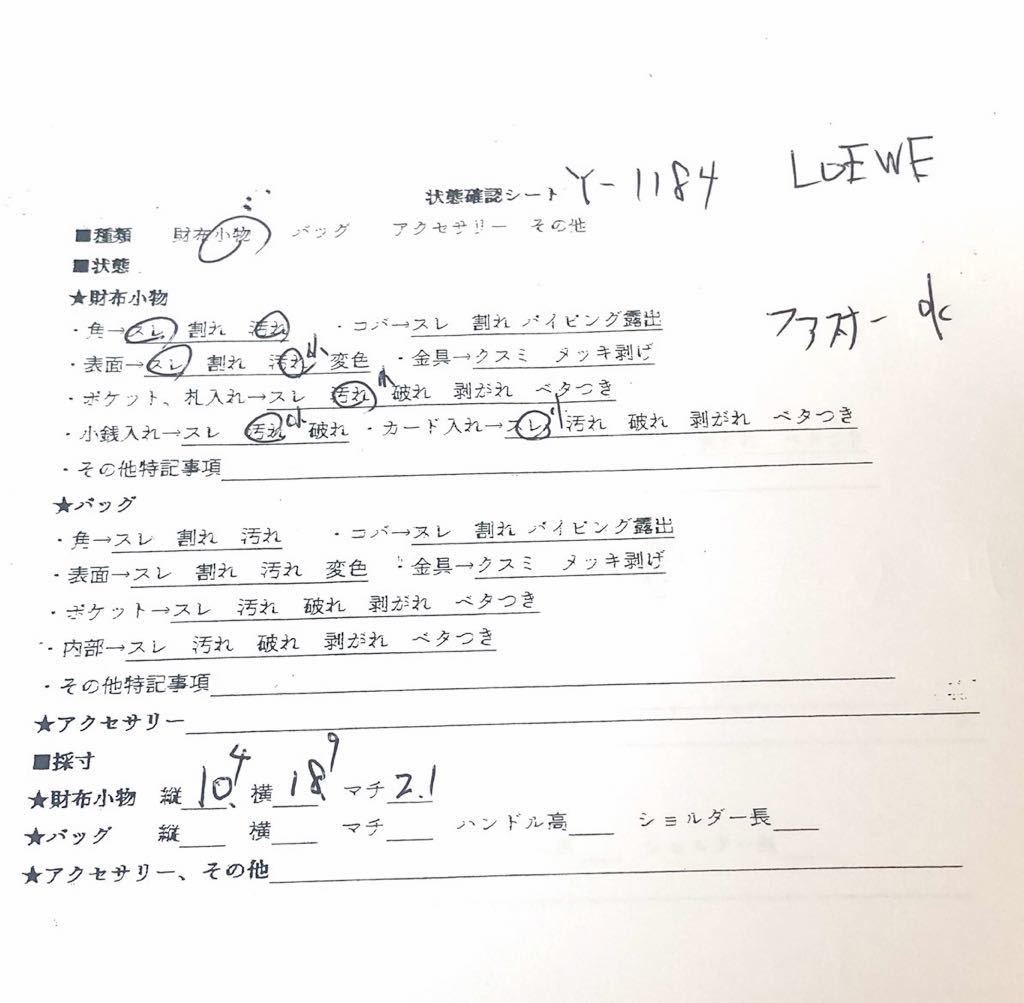 状態確認シート Y-1184 LOEWE
■種類 財布小物 バッグ アクセサリー その他
■状態
★財布小物
・角→スレ 割れ 汚れ ・コバ→スレ 割れ パイピング露出
・表面→スレ 割れ 汚れ小 変色 ・金具→クスミ メッキ剥げ
・ポケット、札入れ→スレ 汚れ小 破れ 剥がれ ベタつき
・小銭入れ→スレ 汚れ小 破れ ・カード入れ→スレ小 汚れ 破れ 剥がれ ベタつき
・その他特記事項
★バッグ
・角→スレ 割れ 汚れ ・コバ→スレ 割れ パイピング露出
・表面→スレ 割れ 汚れ 変色 ・金具→クスミ メッキ剥げ
・ポケット→スレ 汚れ 破れ 剥がれ ベタつき
・内部→スレ 汚れ 破れ 剥がれ ベタつき
・その他特記事項
★アクセサリー
■採寸
★財布小物 縦10.4 横18.9 マチ2.1
★バッグ 縦 横 マチ ハンドル高 ショルダー長
★アクセサリー、その他